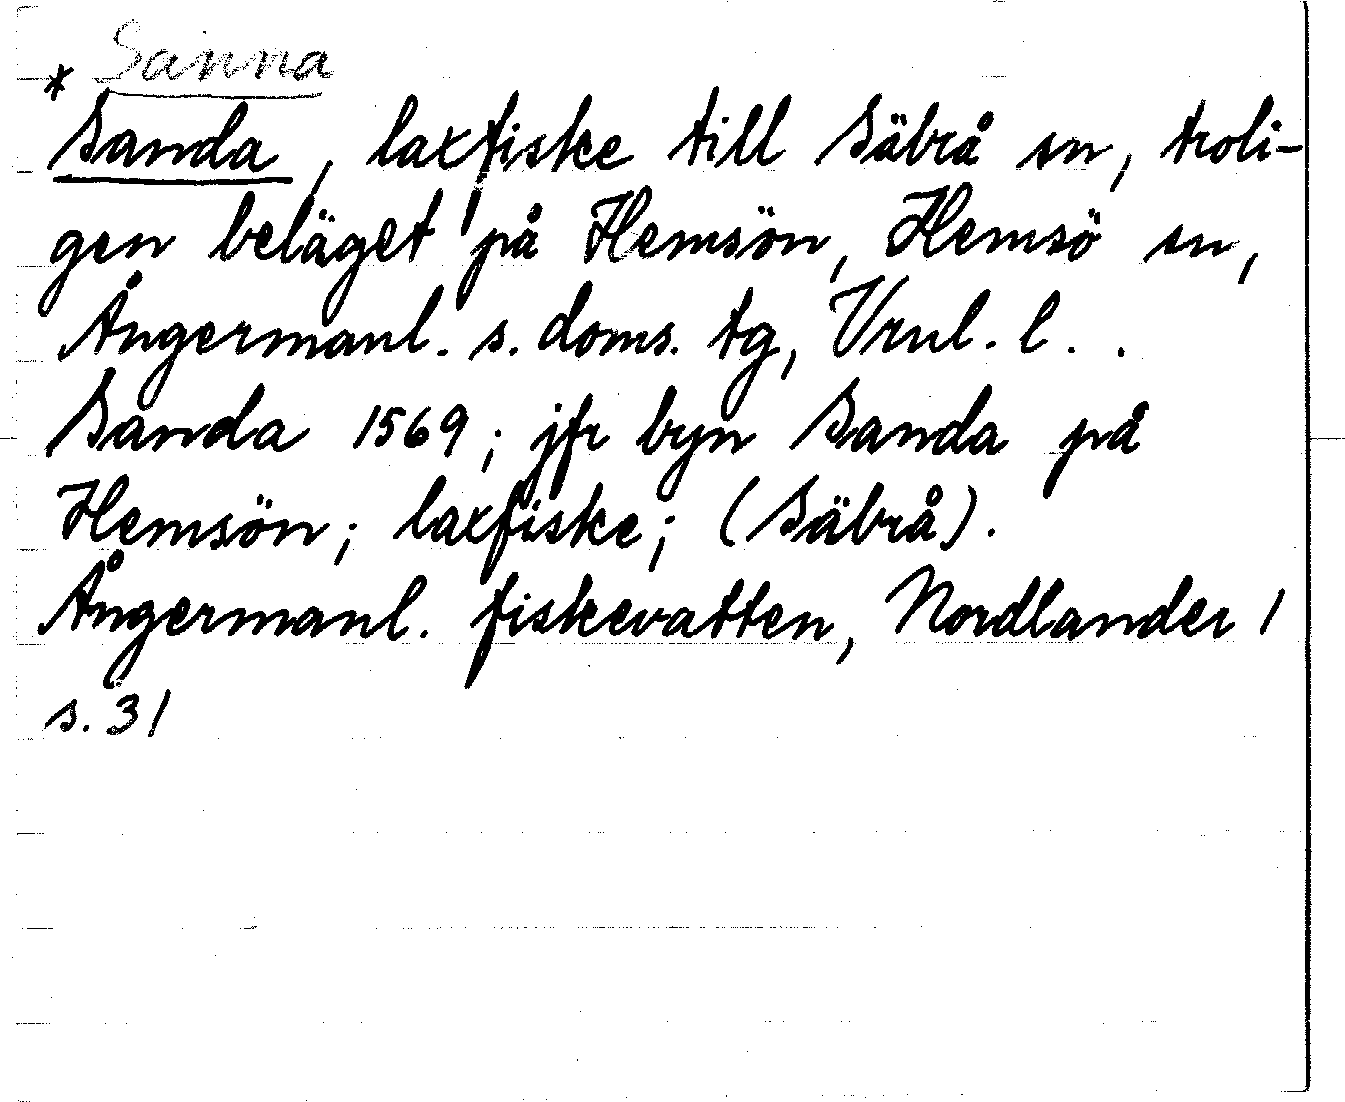 Sanna
* Sanda, laxfiske till Säbrå sn, troli-
gen beläget på Hemsön, Hemsö sn,
Ångermanl. s. doms. tg, Vrnl. l. .
Sanda 1569; jfr byn Sanda på
Hemsön; laxfiske; (Säbrå).
Ångermanl. fiskevatten, Nordlander 1
s. 31